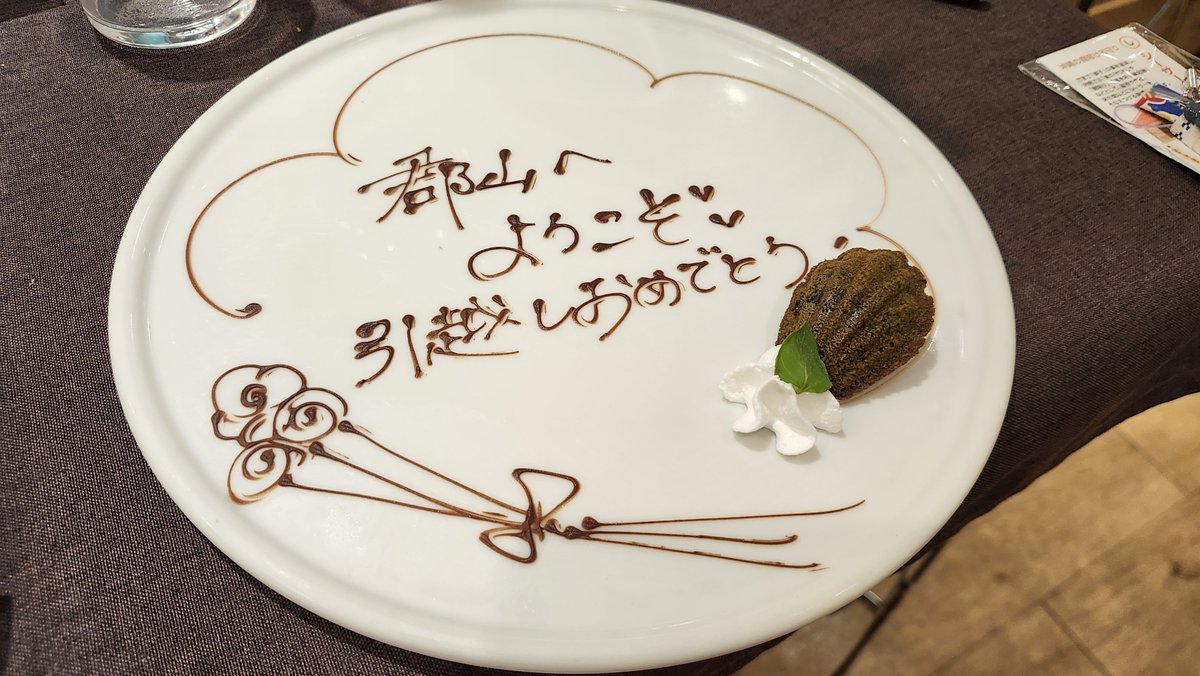 郡山へ
ようこそ♥♥
引越しおめでとう!